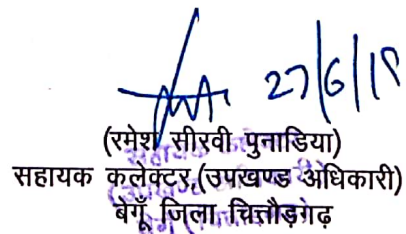 27/6/18
(रमेश सीरवी पुनाडिया)
सहायक कलेक्टर,(उपखण्ड अधिकारी)
बेगूँ जिला चित्तौड़गढ़